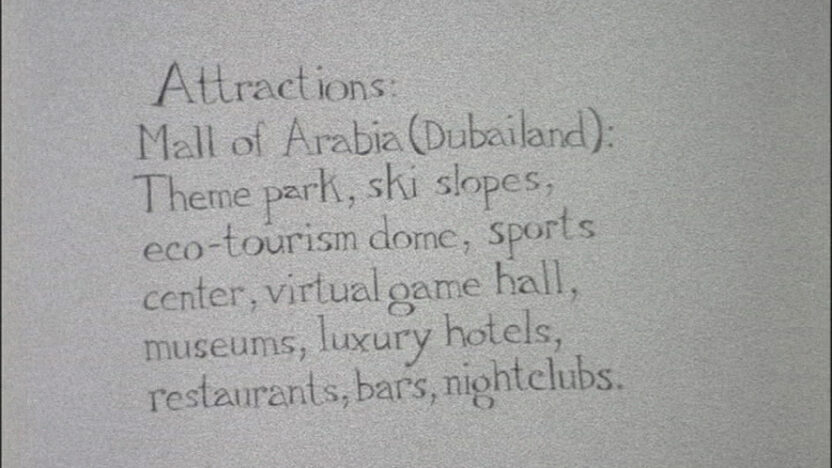 Attractions:
Mall of Arabia (Dubailand):
Theme park, ski slopes,
eco-tourism dome, sports
center, virtual game hall,
museums, luxury hotels,
restaurants, bars, nightclubs.